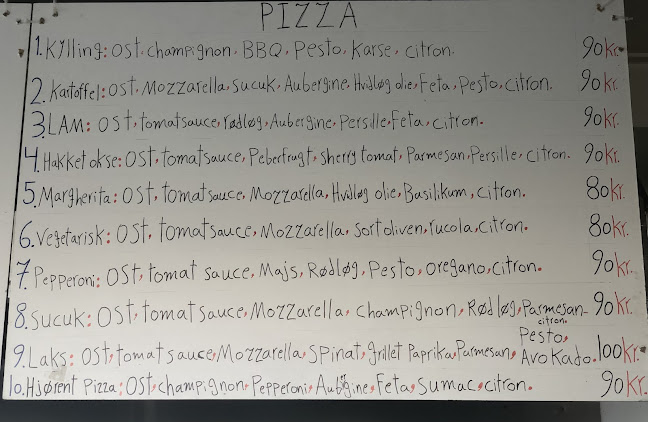 PIZZA
1. Kylling: OST, champignon, BBQ, Pesto, Karse, citron. 90kr.
2. Kartoffel: OST, Mozzarella, Sucuk, Aubergine, Hvidløg olie, Feta, Pesto, citron. 90kr.
3. LAM: OST, tomatsauce, rødløg, Aubergine, Persille, Feta, citron. 90kr.
4. Hakket okse: OST, tomatsauce, Peberfrugt, Sherry tomat, Parmesan, Persille, citron. 90kr.
5. Margherita: OST, tomatsauce, Mozzarella, Hvidløg olie, Basilikum, citron. 80kr.
6. Vegetarisk: OST, tomatsauce, Mozzarella, sort oliven, rucola, citron. 80kr.
7. Pepperoni: OST, tomat sauce, Majs, Rødløg, Pesto, oregano, citron. 90kr.
8. Sucuk: OST, tomat sauce, Mozzarella, champignon, Rødløg, Parmesan, 90kr.
citron.
9. Laks: OST, tomatsauce, Mozzarella, Spinat, grillet Paprika, Parmesan, Pesto, Avokado. 100kr.
10. Hjørent Pizza: OST, champignon, Pepperoni, Aubgine, Feta, Sumac, citron. 90kr.